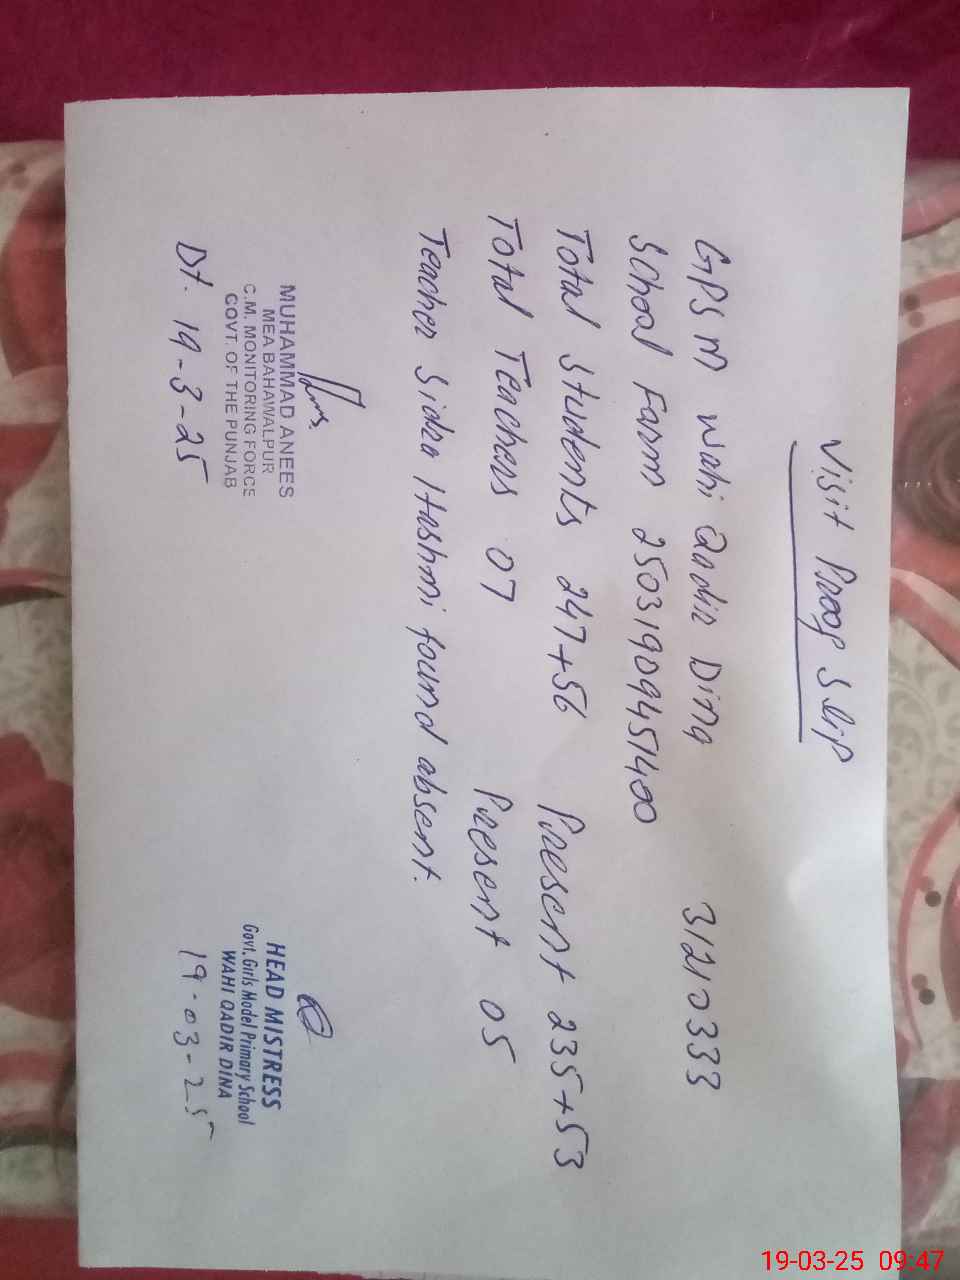 Visit Proof Slip
GPS M Wahi Qadir Dina 31210333
School Farm 250319094451400
Total Students 247+56 Present 235+53
Total Teachers 07 Present 05
Teacher Sidra Hashmi found absent.
MUHAMMAD ANEES
MEA BAHAWALPUR
C.M. MONITORING FORCE
GOVT. OF THE PUNJAB
Dt. 19-3-25
HEAD MISTRESS
Govt. Girls Model Primary School
WAHI QADIR DINA
19-03-25
19-03-25 09:47